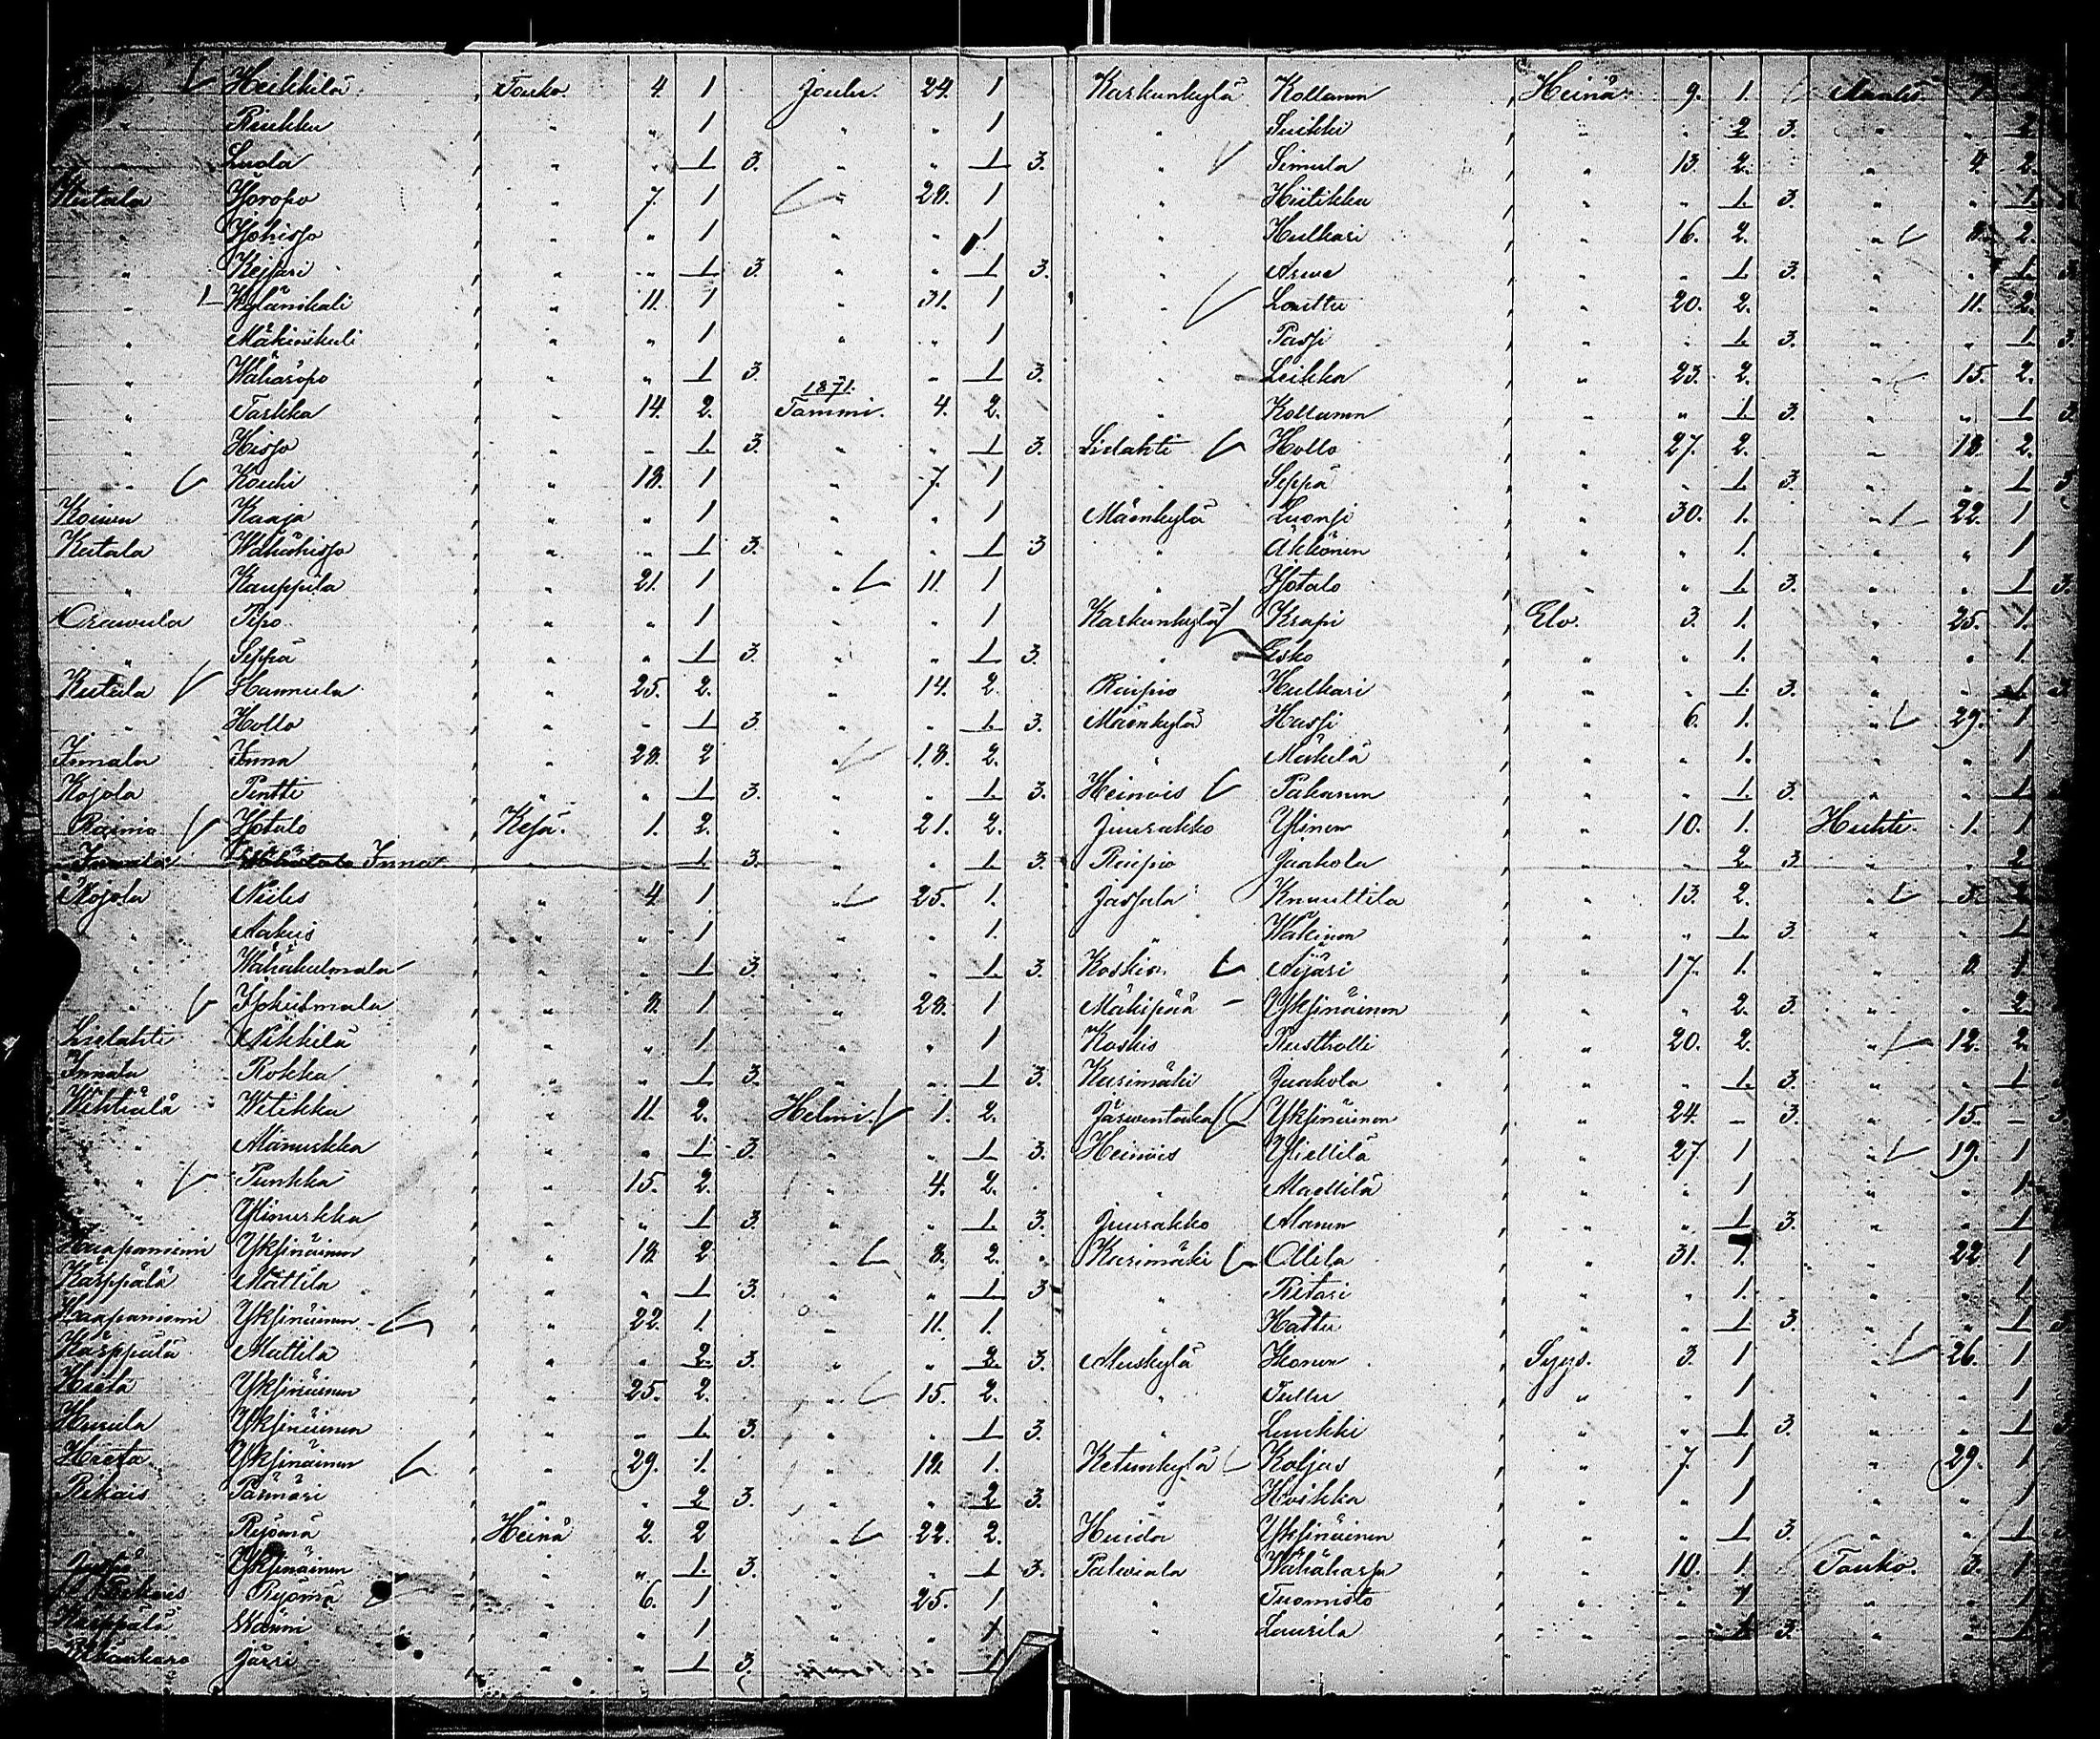 Heikkilä Touko. 4. 1 Joulu. 24. 1
" Riukku " " 1 " " 1
" Luola " " 1 3. " " 1 3.
Kutala Yöropo " 7. 1 " 28. 1
" Yöhisso " " 1 " " 1
" Keijari " " 1 3. " " 1 3.
" Kylänikali " 11. 1 " 31. 1
" Mäkinikali " " 1 " " 1
" Wähäropo " " 1 3. " 1 3.
1871.
" Taskka " 14. 2. Tammi. 4. 2.
" Hisso " " 1 3. " " 1 3.
" Kouhi " 18. 1 " 7. 1
Koiwu Kaaja " " 1 " " 1
Kutala Wähähisso " " 1 3. " " 1 3
" Kauppila " 21. 1 " 11. 1
Orawula Pipo " " 1 " " 1
" Seppä " " 1 3. " " 1 3.
Kutala Hannula " 25. 2. " 14. 2.
" Hollo " " 1 3 " " 1. 3.
Innala Inna " 28. 2 " 18. 2.
Kojola Pentti " " 1 3. " " 1. 3.
Rainio Yötalo Kesä. 1. 2. " 21. 2.
Innala Inna " " 1 3. " " 1 3.
Kojola Niilis " 4 1 " 25. 1.
" Aakus " " 1 " " 1.
" Wähäkulmala " " 1 3. " " 1. 3.
" Yökulmala " 8. 1 " 28. 1
Lielahti Nikkilä " " 1 " " 1
Innala Rokka " " 1 3. " " 1 3.
Wihtiälä Witikka " 11. 2. Helmi. 1. 2.
" Mänuskka " " 1 3. " " 1 3.
" Punkka " 15. 2. " 4. 2.
" Ylinuskka " " 1 3. " " 1. 3.
Haapaniemi Yksinäinen " 18. 2 " 8. 2.
Kärppälä Mattila " " 1 3. " " 1 3
Haapaniemi Yksinäinen " 22. 1. " 11. 1.
Kärppälä Mattila " " 2. 3. " " 2. 3.
Hieta Yksinäinen " 25. 2. " 15. 2.
Yksinäinen " " 1 3. " " 1 3.
Hieta Yksinäinen " 29. 1. " 18. 1.
Rekais Pännäri " " 2 3. " " 2 3.
" Ryömä Heinä 2. 2 " 22. 2.
Yksinäinen " " 1. 3. " " 1 3.
Rekais Ryömä " 6. 1 " 25. 1
Kärppälä Wänni " " 1 " " 1
Järri " " 1 3. " " 1
Karkunkylä Kollanen Heinä. 9. 1.
" Suikki " " 2 3. " " 2
" Simula " 13. 2. " 4. 2.
" Hiitikku " " 1. 3. " " 1.
" Hulkari " 16. 2. " 8. 2.
" Arwe " " 1 3. " " 1 3
" Louttu " 20. 2. " 11. 2.
" Passi " " 1. 3. " " 1 3.
" Leikka " 23. 2. " 15. 2.
" Kollanen " " 1. 3. " " 1 3.
Lielahti Hollo " 27. 2. " 18 2.
" Seppä " " 1 3. " " 1 3
Mäenkylä Luonsi " 30. 1. " 22. 1
" Äkkönen " " 1. " " 1
" Yötalo " " 1 3. " " 1 3.
Karkunkylä Krapi Elo. 3. 1. " 25. 1.
" Esko " " 1. " " 1.
Raipio Hulkari " " 1. 3. " " 1 3
Mäenkylä Hassi " 6. 1. " 29. 1
" Mäkelä " " 1. " " 1
Heinois Pakanen " " 1 3. " " 1
Juusakko Ylinen " 10. 1. Huhti. 1. 1
Raipio Jaakola " " 2 3 " " 2
Jassala Knuuttila " 13. 2. " 5. 2
" Wäkinen " " 1 3. " " 1
Koskis Äijäri " 17. 1. " 8 1
Mäkipää Yksinäinen " " 2. 3. " " 2.
Koskis Rustholli " 20. 2. " 12. 2.
Karimäki Jaakola " " 1 3. " " 1
Järwentaka Yksinäinen " 24. - 3. " 15. - 3.
Heinois Ylottilä " 27. 1 " 19. 1
" Maottilä " " 1 " " 1
Juusakko Alanen " " 1 3. " " 1
Karimäki Ollila " 31. 1. " 22 1
" Ritari " " 1. " " 1
" Hattu " " 1 3. " " 1 3
Aluskylä Honen Syys. 3. 1 " 26. 1
" Tullu " " 1 " " 1
" Luukki " " 1 3. " " 1
Ketunkylä Koljas " 7. 1 " 29. 1
" Hoikka " " 1 " " 1
Huida Yksinäinen " " 1 3. " " 1
Palwiala Wähähassa " 10. 1. Touko. 3. 1
" Tuomisto " " 1 " " 1
" Laurila " " 1 3. " " 1